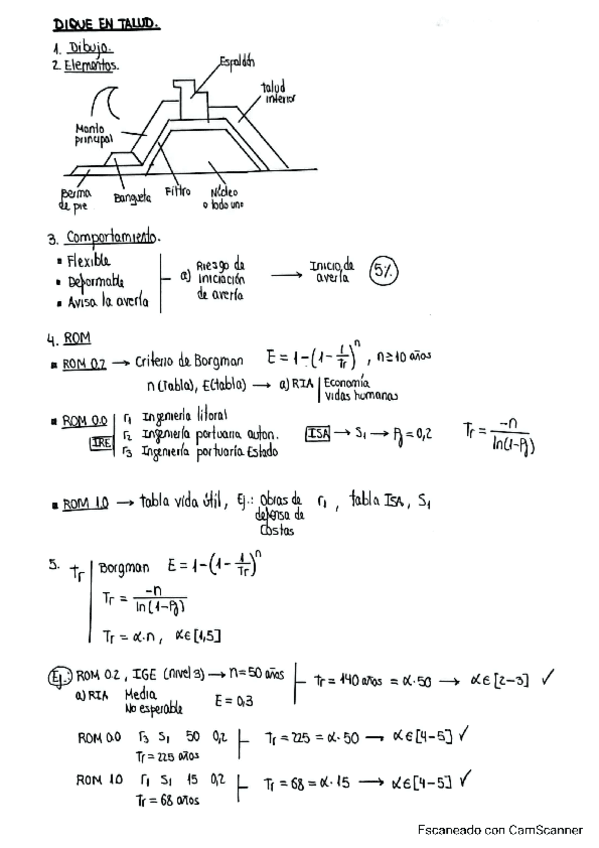 DIQUE EN TALUD.
1. Dibujo.
2. Elementos.
Espaldón
talud
interior
Manto
principal
Berma
de pie
Banqueta
Filtro
Núcleo
o todo uno
3. Comportamiento.
▪ Flexible
▪ Deformable
▪ Avisa la avería
a) Riesgo de
iniciación
de avería
→ Inicio de
avería
5%
4. ROM
▪ ROM 0.2 → Criterio de Borgman E = 1-(1-1/Tr)^n, n≥10 años
n (Tabla), E (tabla) → a) RIA | Economía
vidas humanas
▪ ROM 0.0 | r1 Ingeniería litoral
IRE | r2 Ingeniería portuaria auton.
r3 Ingeniería portuaria Estado
ISA → S1 → Pf = 0,2 Tr = -n/ln(1-Pf)
▪ ROM 1.0 → tabla vida útil, Ej.: Obras de
defensa de
Costas
r1, tabla ISA, S1
5. Tr | Borgman E = 1-(1-1/Tr)^n
Tr = -n/ln(1-Pf)
Tr = α·n, α∈[1,5]
Ej.: ROM 0.2, IGE (nivel 3) → n=50 años
a) RIA Media
No esperable
E = 0,3
Tr = 140 años = α·50 → α∈[2-3] ✓
ROM 0.0 r3 S1 50 0,2 Tr = 225 = α·50 → α∈[4-5] ✓
Tr = 225 años
ROM 1.0 r1 S1 15 0,2 Tr = 68 = α·15 → α∈[4-5] ✓
Tr = 68 años
Escaneado con CamScanner